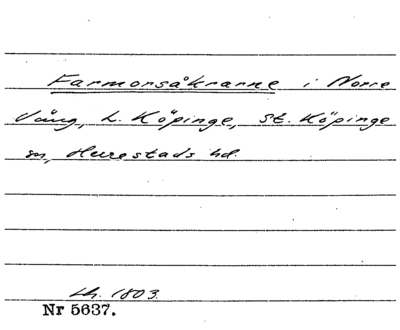 Farmorsåkrarne i Norre
Vång, L. Köpinge, St. Köpinge
sn, Herrestads hd.
Lh. 1803.
Nr 5637.